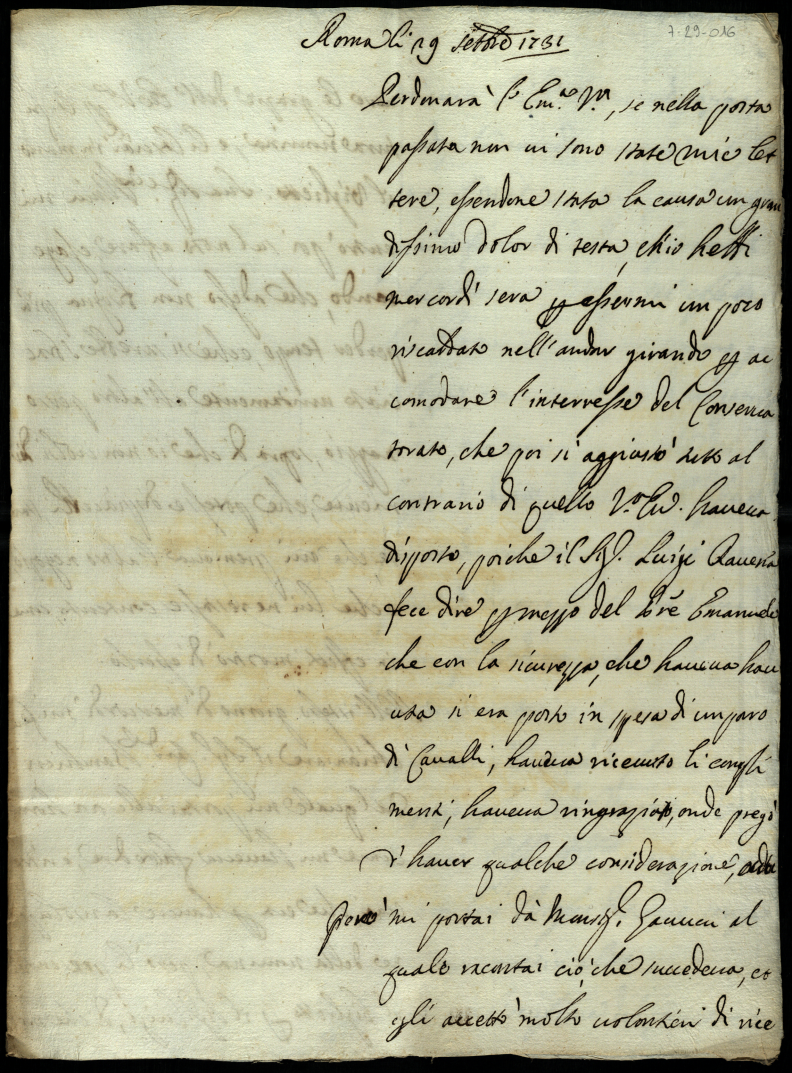 7-29-016
Roma li 29 Settbre 1731
Perdonarà l'Em.a V.ra, se nella posta
passata non vi sono state mie let
tere, essendone stata la causa un gran
dissimo dolor di testa, ch'io hebbi
mercordì sera p essermi un poco
riscaldato nell'andar girando p ac
comodare l'interresse del Conserva
torato, che poi si aggiustò tutto al
contrario di quello V.ra Em. haveva
disposto, poiche il Sig.r Luigi
fece dire p mezzo del Pre Emanuele
che con la sicurezza, che haveva hav
uta si era posto in spesa di un paro
di Cavalli, haveva ricevuto li compli
menti, haveva ringraziato, onde pregò
d'haver qualche considerazione,
però mi portai dà Monsig.r al
quale racontai ciò che succedeva, et
egli accettò molto volontieri di rice